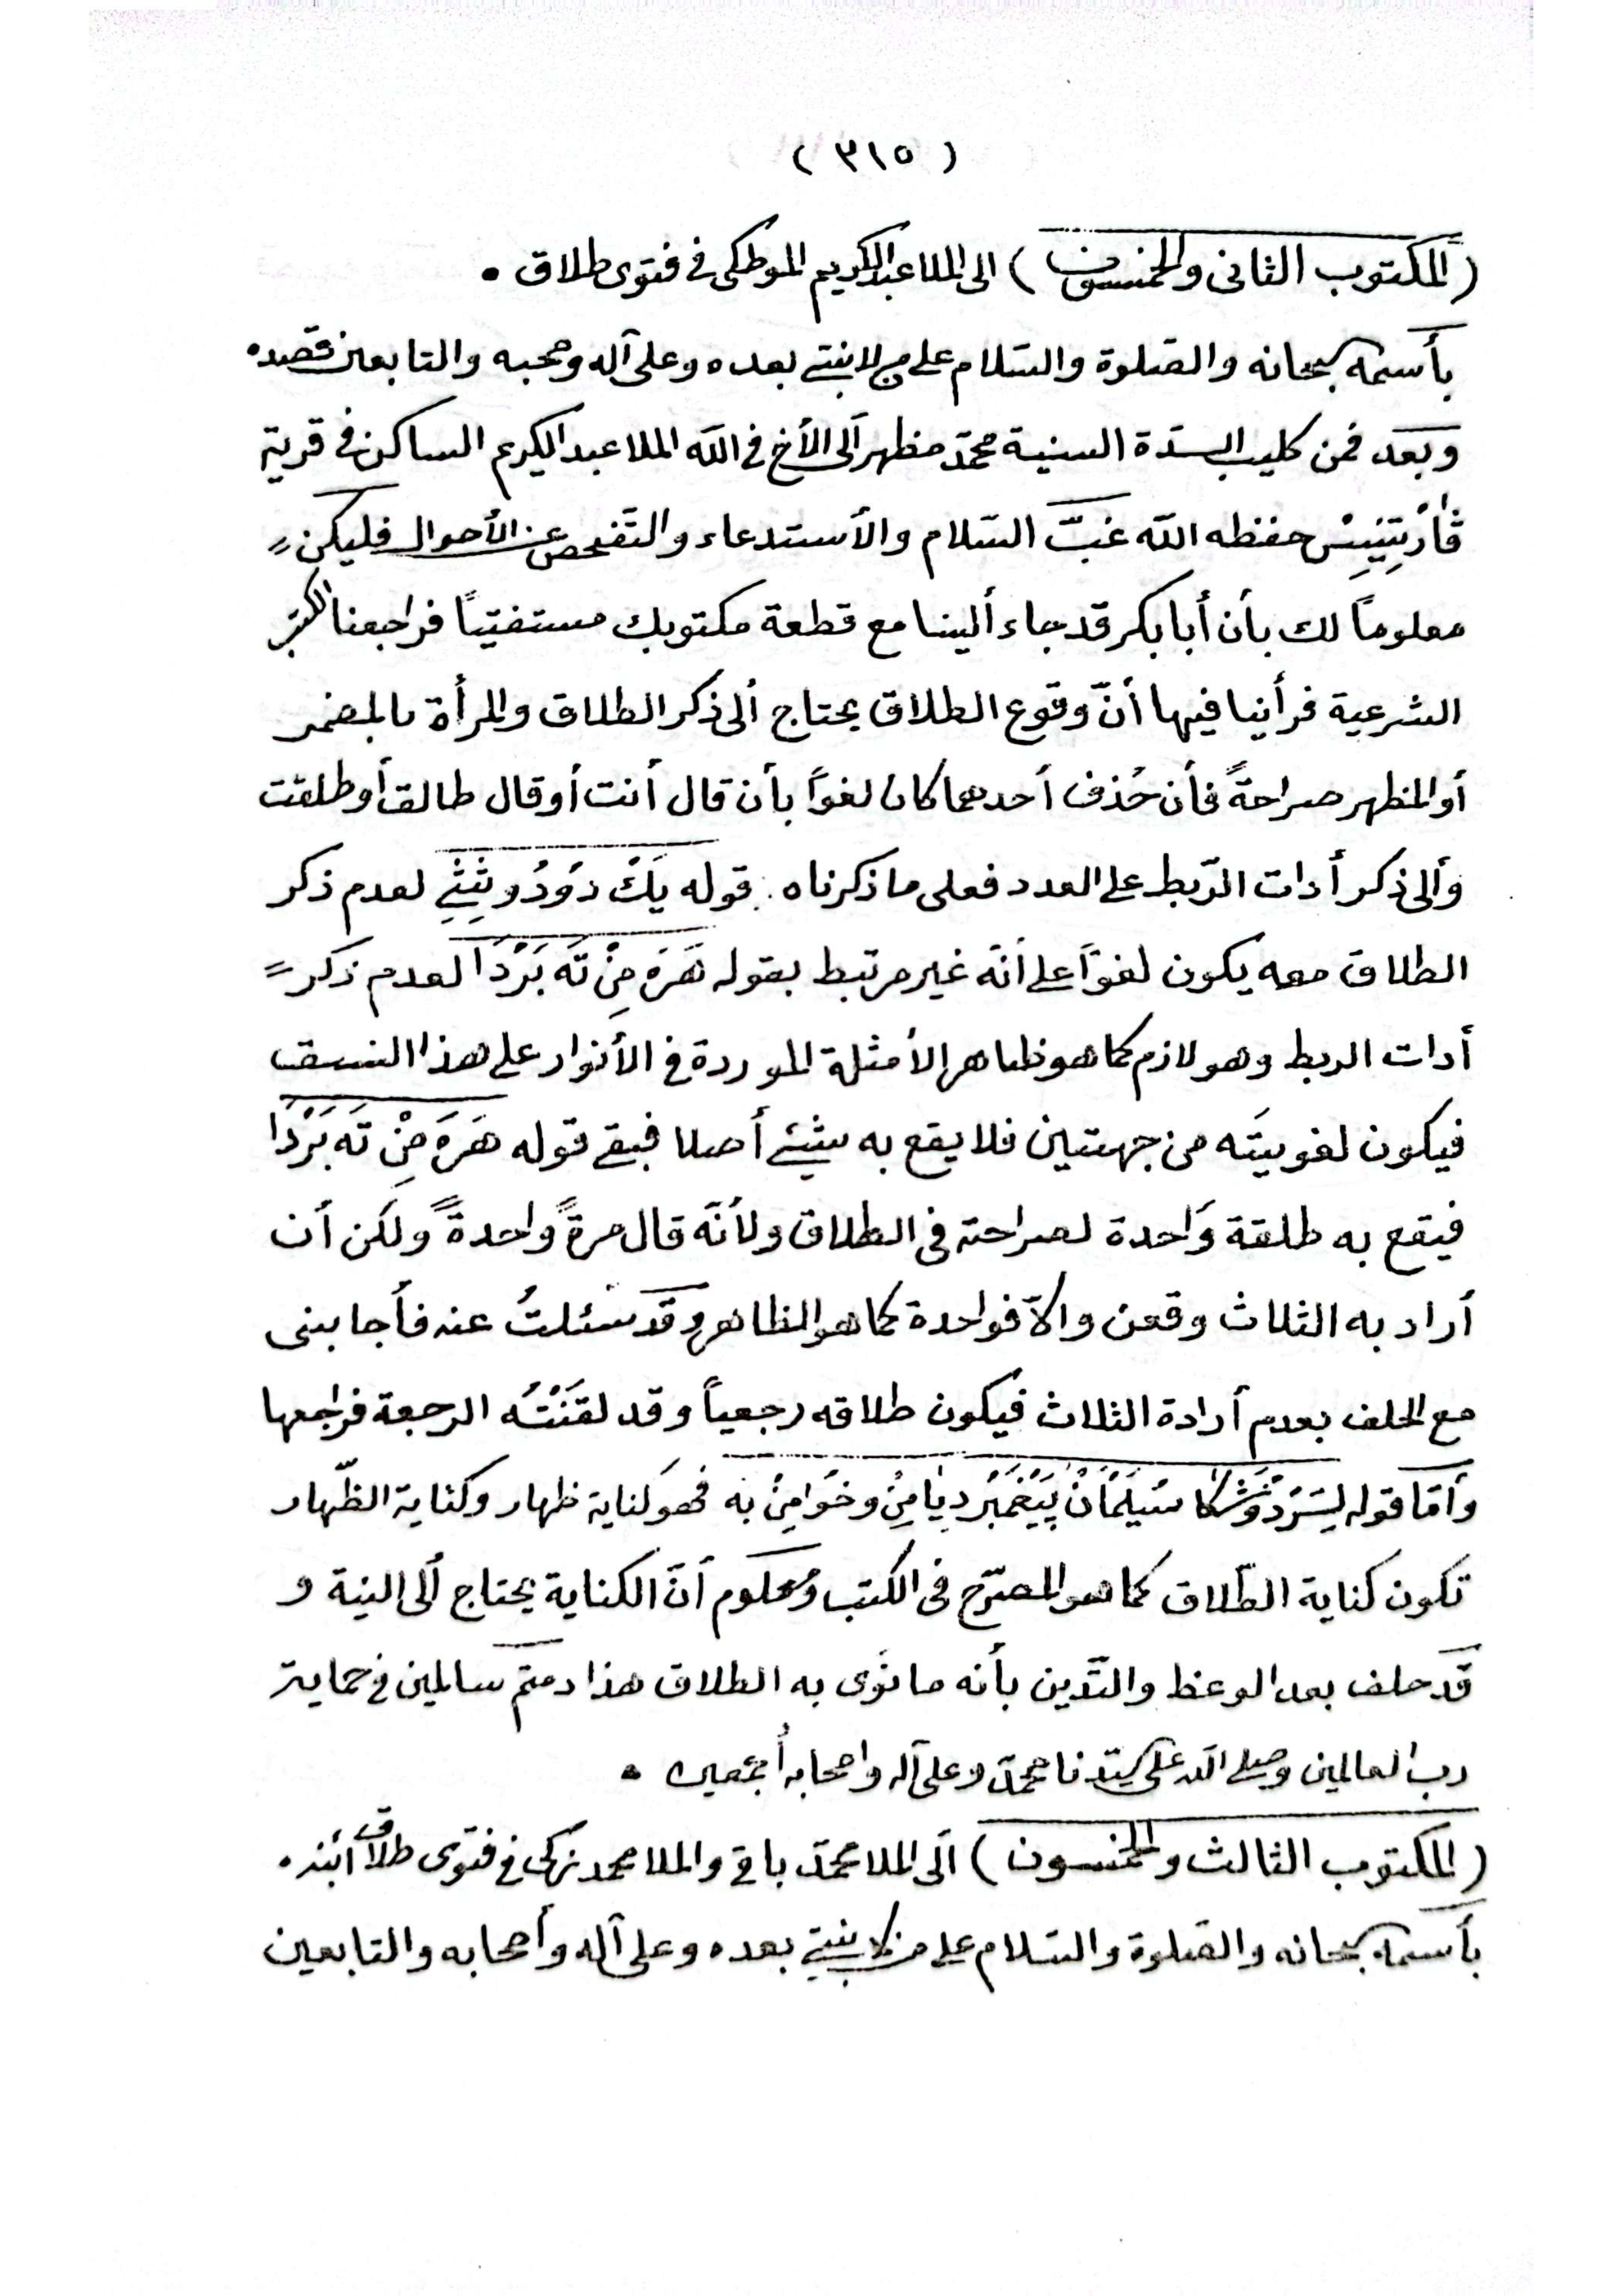 ( ٣١٥ )
(المكتوب الثانى والخمسون) الى الملا عبدالكريم الموطكى فى فتوى طلاق •
بأسمه سبحانه والصلوة والسّلام على من لا نبيّ بعده وعلى آله وصحبه والتابعين قصده
وبعد فمن كليب السدّة السنية محمّد مظهر ألى الأخ فى اللّه الملا عبدالكريم الساكن فى قرية
ڤارْتِنِيسْ حفظه اللّه غبّ السّلام والأستدعاء والتفحص عن الأحوال فليكن
معلوماً لك بأن أبا بكر قد جاء ألينا مع قطعة مكتوبك مستفتياً فراجعنا الكتب
الشرعية فرأينا فيها أنّ وقوع الطلاق يحتاج ألى ذكر الطلاق والمرأة بالمضمر
أو المظهر صراحةً فأن حُذف أحدهما كان لغواً بأن قال أنت أو قال طالق أو طلقت
وألى ذكر أدات الرّبط على العدد فعلى ما ذكرناه . قوله يَكْ دُودُو سِسِ لعدم ذكر
الطلاق معه يكون لغواً على أنّه غير مرتبط بقوله هَرَه مِنْ تَه بَرْدَا لعدم ذكر
أدات الربط وهو لازم كما هو ظاهر الأمثلة الموردة فى الأنوار على هذا النسق
فيكون لغوييَته من جهتين فلا يقع به شيئ أصلا فبقي قوله هَرَه مِنْ تَه بَرْدَا
فيقع به طلقة وَاحدة لصراحته فى الطلاق ولأنّه قال مرةً واحدةً ولكن أن
أراد به الثلاث وقعن والاّ فواحدة كما هو الظاهر وقد سئلتُ عنه فأجابنى
مع الحلف بعدم أرادة الثلاث فيكون طلاقه رجعياً وقد لقّنْتُه الرجعة فراجعها
وأمّا قوله سُيلَمَانْ پَيْغَمْبَرْ دِيَا مِنْ وخُوَا مِنْ به فهو كناية ظهار وكناية الظّهار
تكون كناية الطّلاق كما هو المصرّح فى الكتب ومعلوم أنّ الكناية يحتاج ألى النية و
قد حلف بعد الوعظ والتّدين بأنه ما نوى به الطلاق هذا دمتم سالمين فى حماية
رب العالمين وصلى اللّه على سيّدنا محمّد وعلى آله واصحابه أجمعين •
(المكتوب الثالث والخمسون) ألى الملا محمّد باقى والملا محمد فى فتوى طلاق .
بأسمه سبحانه والصّلوة والسّلام على من لا نبيّ بعده وعلى آله وأصحابه والتابعين